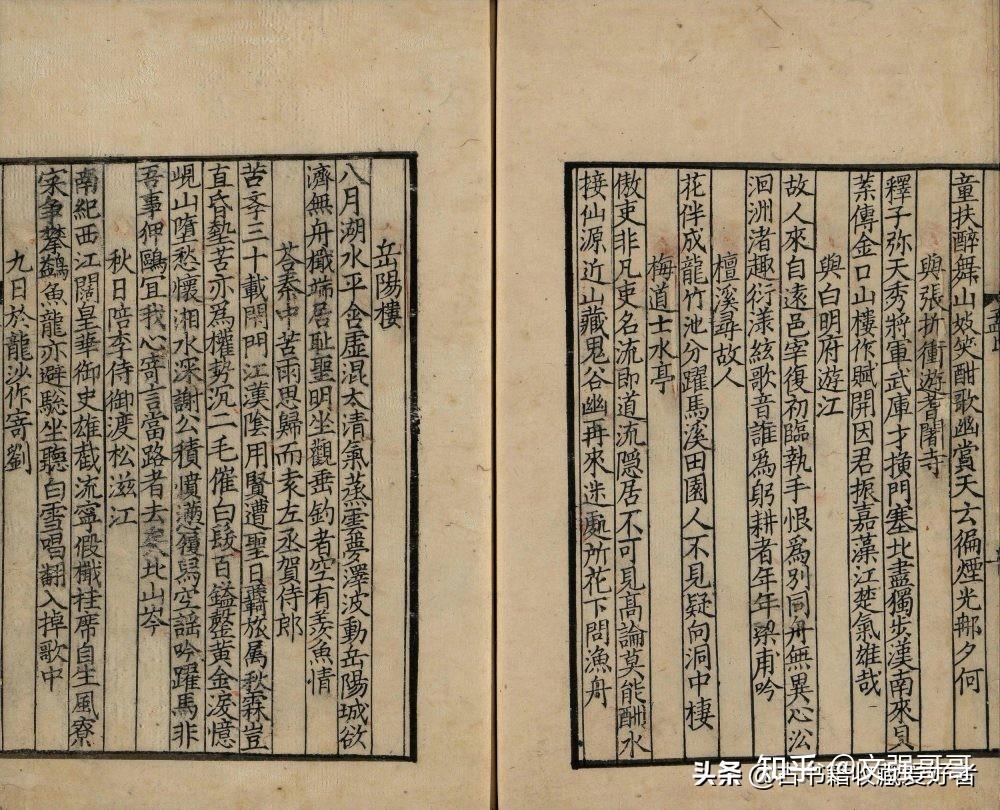 童扶醉舞山妓笑酣歌幽賞天玄徧煙光鄉夕何
與張折衝遊耆闍寺
釋子弥天秀將軍武庫才撗門塞北盡獨步漢南來貝
葉傳金口山樓作賦開因君振嘉藻江楚氣雄哉
與白明府遊江
故人來自遠邑宰復初臨執手恨爲別同舟無異心㳂
洄洲渚趣衍漾絃歌音誰爲躬耕者年年梁甫吟
檀溪尋故人
花伴成龍竹池分躍馬溪田園人不見疑向洞中棲
梅道士水亭
傲吏非凡吏名流即道流隱居不可見高論莫能酬水
接仙源近山藏鬼谷幽再來迷處所花下問漁舟
岳陽樓
八月湖水平含虛混太清氣蒸雲夢澤波動岳陽城欲
濟無舟檝端居恥聖明坐觀垂釣者空有羨魚情
荅秦中苦雨思歸而袁左丞賀侍郎
苦季三十載閉門江漢陰用賢遭聖日羇旅属秋霖豈
直昏墊苦亦爲權勢沉二毛催白髮百鎰罄黃金淚憶
峴山墮愁懷湘水深謝公積憤懣莊舄空謡吟躍馬非
吾事狎鷗宜我心寄言當路者去矣北山岑
秋日陪李侍御渡松滋江
南紀西江闊皇華御史雄截流寧假檝挂席自生風寮
寀爭攀鷁魚龍亦避驄坐聽白雪唱翻入掉歌中
九日於龍沙作寄劉
知乎 @文强哥哥
头条 @古书籍收藏爱好者